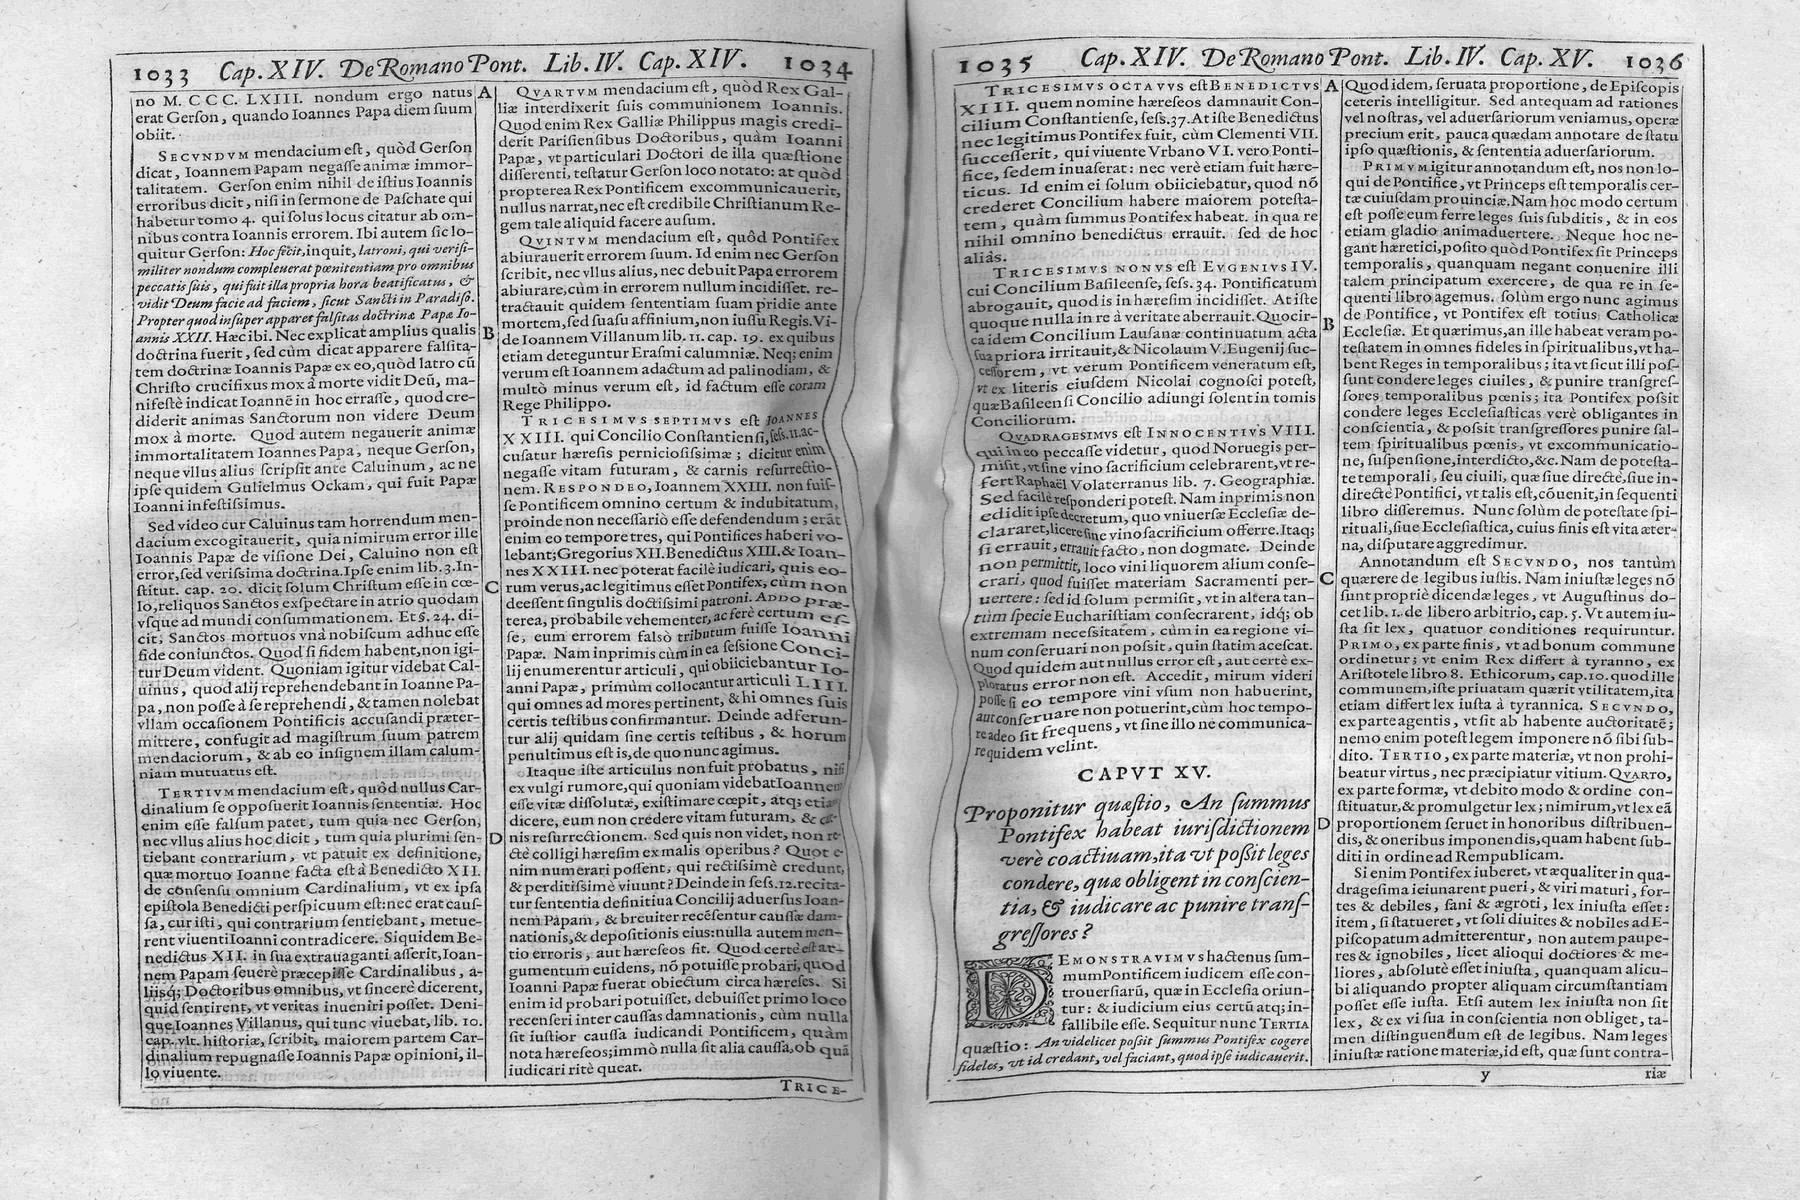 1033 Cap. XIV. De Romano Pont. Lib. IV. Cap. XIV. 1034
no M. C C C. LXIII. nondum ergo natus
erat Gerson, quando Ioannes Papa diem suum
obiit.
SECVNDVM mendacium est, quòd Gerson
dicat, Ioannem Papam negasse animæ immor-
talitatem. Gerson enim nihil de istius Ioannis
erroribus dicit, nisi in sermone de Paschate qui
habetur tomo 4. qui solus locus citatur ab om-
nibus contra Ioannis errorem. Ibi autem sic lo-
quitur Gerson: Hoc fecit, inquit, latroni, qui verisi-
militer nondum compleuerat pœnitentiam pro omnibus
peccatis suis, qui fuit illa propria hora beatificatus, &
vidit Deum facie ad faciem, sicut Sancti in Paradiso.
Propter quod insuper apparet falsitas doctrinæ Papæ Io-
annis XXII. Hæc ibi. Nec explicat amplius qualis
doctrina fuerit, sed cùm dicat apparere falsita-
tem doctrinæ Ioannis Papæ ex eo, quòd latro cũ
Christo crucifixus mox à morte vidit Deũ, ma-
nifestè indicat Ioannẽ in hoc errasse, quod cre-
diderit animas Sanctorum non videre Deum
mox à morte. Quod autem negauerit animæ
immortalitatem Ioannes Papa, neque Gerson,
neque vllus alius scripsit ante Caluinum, ac ne
ipse quidem Gulielmus Ockam, qui fuit Papæ
Ioanni infestissimus.
Sed video cur Caluinus tam horrendum men-
dacium excogitauerit, quia nimirum error ille
Ioannis Papæ de visione Dei, Caluino non est
error, sed verissima doctrina. Ipse enim lib. 3. In-
stitut. cap. 20. dicit solum Christum esse in cœ-
lo, reliquos Sanctos exspectare in atrio quodam
vsque ad mundi consummationem. Et §. 24. di-
cit, Sanctos mortuos vnà nobiscum adhuc esse
fide coniunctos. Quod si fidem habent, non igi-
tur Deum vident. Quoniam igitur videbat Cal-
uinus, quod alij reprehendebant in Ioanne Pa-
pa, non posse à se reprehendi, & tamen nolebat
vllam occasionem Pontificis accusandi præter-
mittere, confugit ad magistrum suum patrem
mendaciorum, & ab eo insignem illam calum-
niam mutuatus est.
TERTIVM mendacium est, quòd nullus Car-
dinalium se opposuerit Ioannis sententiæ. Hoc
enim esse falsum patet, tum quia nec Gerson,
nec vllus alius hoc dicit, tum quia plurimi sen-
tiebant contrarium, vt patuit ex definitione,
quæ mortuo Ioanne facta est à Benedicto XII.
de consensu omnium Cardinalium, vt ex ipsa
epistola Benedicti perspicuum est: nec erat caus-
sa, cur isti, qui contrarium sentiebant, metue-
rent viuenti Ioanni contradicere. Siquidem Be-
nedictus XII. in sua extrauaganti asserit, Ioan-
nem Papam seuerè præcepisse Cardinalibus, a-
liisq; Doctoribus omnibus, vt sincerè dicerent,
quid sentirent, vt veritas inueniri posset. Deni-
que Ioannes Villanus, qui tunc viuebat, lib. 10.
cap. vlt. historiæ, scribit, maiorem partem Car-
dinalium repugnasse Ioannis Papæ opinioni, il-
lo viuente.
A
B
C
D
QVARTVM mendacium est, quòd Rex Gal-
liæ interdixerit suis communionem Ioannis.
Quod enim Rex Galliæ Philippus magis credi-
derit Parisiensibus Doctoribus, quàm Ioanni
Papæ, vt particulari Doctori de illa quæstione
disserenti, testatur Gerson loco notato: at quòd
propterea Rex Pontificem excommunicauerit,
nullus narrat, nec est credibile Christianum Re-
gem tale aliquid facere ausum.
QVINTVM mendacium est, quòd Pontifex
abiurauerit errorem suum. Id enim nec Gerson
scribit, nec vllus alius, nec debuit Papa errorem
abiurare, cùm in errorem nullum incidisset. re-
tractauit quidem sententiam suam pridie ante
mortem, sed suasu affinium, non iussu Regis. Vi-
de Ioannem Villanum lib. 11. cap. 19. ex quibus
etiam deteguntur Erasmi calumniæ. Neq; enim
verum est Ioannem adactum ad palinodiam, &
multò minus verum est, id factum esse coram
Rege Philippo.
TRICESIMVS SEPTIMVS est IOANNES
XXIII. qui Concilio Constantiensi, sess. 11. ac-
cusatur hæresis perniciosissimæ; dicitur enim
negasse vitam futuram, & carnis resurrectio-
nem. RESPONDEO, Ioannem XXIII. non fuis-
se Pontificem omnino certum & indubitatum,
proinde non necessariò esse defendendum; erãt
enim eo tempore tres, qui Pontifices haberi vo-
lebant; Gregorius XII. Benedictus XIII. & Ioan-
nes XXIII. nec poterat facilè iudicari, quis eo-
rum verus, ac legitimus esset Pontifex, cùm non
deessent singulis doctissimi patroni. ADDO præ-
terea, probabile vehementer, ac ferè certum es-
se, eum errorem falsò tributum fuisse Ioanni
Papæ. Nam inprimis cùm in ea sessione Conci-
lij enumerentur articuli, qui obiiciebantur Io-
anni Papæ, primùm collocantur articuli LIII.
qui omnes ad mores pertinent, & hi omnes suis
certis testibus confirmantur. Deinde adferun-
tur alij quidam sine certis testibus, & horum
penultimus est is, de quo nunc agimus.
Itaque iste articulus non fuit probatus, nisi
ex vulgi rumore, qui quoniam videbat Ioannem
esse vitæ dissolutæ, existimare cœpit, atq; etiam
dicere, eum non credere vitam futuram, & car-
nis resurrectionem. Sed quis non videt, non re-
ctè colligi hæresim ex malis operibus? Quot e-
nim numerari possent, qui rectissimè credunt,
& perditissimè viuunt? Deinde in sess. 12. recita-
tur sententia definitiua Concilij aduersus Ioan-
nem Papam, & breuiter recẽsentur caussæ dam-
nationis, & depositionis eius: nulla autem men-
tio erroris, aut hæreseos fit. Quod certè est ar-
gumentum euidens, nõ potuisse probari, quod
Ioanni Papæ fuerat obiectum circa hæreses. Si
enim id probari potuisset, debuisset primo loco
recenseri inter caussas damnationis, cùm nulla
sit iustior caussa iudicandi Pontificem, quàm
nota hæreseos; immò nulla sit alia caussa, ob quã
iudicari ritè queat.
TRICE-
1035 Cap. XIV. De Romano Pont. Lib. IV. Cap. XV. 1036
TRICESIMVS OCTAVVS est BENEDICTVS
XIII. quem nomine hæreseos damnauit Con-
cilium Constantiense, sess. 37. At iste Benedictus
nec legitimus Pontifex fuit, cùm Clementi VII.
successerit, qui viuente Vrbano VI. vero Ponti-
fice, sedem inuaserat: nec verè etiam fuit hære-
ticus. Id enim ei solum obiiciebatur, quod nõ
crederet Concilium habere maiorem potesta-
tem, quàm summus Pontifex habeat. in qua re
nihil omnino benedictus errauit. sed de hoc
aliàs.
TRICESIMVS NONVS est EVGENIVS IV.
cui Concilium Basileense, sess. 34. Pontificatum
abrogauit, quod is in hæresim incidisset. At iste
quoque nulla in re à veritate aberrauit. Quocir-
ca idem Concilium Lausanæ continuatum acta
sua priora irritauit, & Nicolaum V. Eugenij suc-
cessorem, vt verum Pontificem veneratum est,
vt ex literis eiusdem Nicolai cognosci potest,
quæ Basileensi Concilio adiungi solent in tomis
Conciliorum.
QVADRAGESIMVS est INNOCENTIVS VIII.
qui in eo peccasse videtur, quod Noruegis per-
misit, vt sine vino sacrificium celebrarent, vt re-
fert Raphaël Volaterranus lib. 7. Geographiæ.
Sed facilè responderi potest. Nam inprimis non
edidit ipse decretum, quo vniuersæ Ecclesiæ de-
clararet, licere sine vino sacrificium offerre. Itaq;
si errauit, errauit facto, non dogmate. Deinde
non permittit, loco vini liquorem alium conse-
crari, quod fuisset materiam Sacramenti per-
uertere: sed id solum permisit, vt in altera tan-
tùm specie Eucharistiam consecrarent, idq; ob
extremam necessitatem, cùm in ea regione vi-
num conseruari non possit, quin statim acescat.
Quod quidem aut nullus error est, aut certè ex-
ploratus error non est. Accedit, mirum videri
posse si eo tempore vini vsum non habuerint,
aut conseruare non potuerint, cùm hoc tempo-
re adeo sit frequens, vt sine illo ne communica-
re quidem velint.
CAPVT XV.
Proponitur quæstio, An summus
Pontifex habeat iurisdictionem
verè coactiuam, ita vt possit leges
condere, quæ obligent in conscien-
tia, & iudicare ac punire trans-
gressores?
DEMONSTRAVIMVS hactenus sum-
mum Pontificem iudicem esse con-
trouersiarũ, quæ in Ecclesia oriun-
tur: & iudicium eius certũ atq; in-
fallibile esse. Sequitur nunc TERTIA
quæstio: An videlicet possit summus Pontifex cogere
fideles, vt id credant, vel faciant, quod ipse iudicauerit.
A
B
C
D
Quod idem, seruata proportione, de Episcopis
ceteris intelligitur. Sed antequam ad rationes
vel nostras, vel aduersariorum veniamus, operæ
precium erit, pauca quædam annotare de statu
ipso quæstionis, & sententia aduersariorum.
PRIMVM igitur annotandum est, nos non lo-
qui de Pontifice, vt Princeps est temporalis cer-
tæ cuiusdam prouinciæ. Nam hoc modo certum
est posse eum ferre leges suis subditis, & in eos
etiam gladio animaduertere. Neque hoc ne-
gant hæretici, posito quòd Pontifex sit Princeps
temporalis, quanquam negant conuenire illi
talem principatum exercere, de qua re in se-
quenti libro agemus. solùm ergo nunc agimus
de Pontifice, vt Pontifex est totius Catholicæ
Ecclesiæ. Et quærimus, an ille habeat veram po-
testatem in omnes fideles in spiritualibus, vt ha-
bent Reges in temporalibus; ita vt sicut illi pos-
sunt condere leges ciuiles, & punire transgres-
sores temporalibus pœnis; ita Pontifex possit
condere leges Ecclesiasticas verè obligantes in
conscientia, & possit transgressores punire sal-
tem spiritualibus pœnis, vt excommunicatio-
ne, suspensione, interdicto, &c. Nam de potesta-
te temporali, seu ciuili, quæ siue directè, siue in-
directè Pontifici, vt talis est, cõuenit, in sequenti
libro disseremus. Nunc solùm de potestate spi-
rituali, siue Ecclesiastica, cuius finis est vita æter-
na, disputare aggredimur.
Annotandum est SECVNDO, nos tantùm
quærere de legibus iustis. Nam iniustæ leges nõ
sunt propriè dicendæ leges, vt Augustinus do-
cet lib. 1. de libero arbitrio, cap. 5. Vt autem iu-
sta sit lex, quatuor conditiones requiruntur.
PRIMO, ex parte finis, vt ad bonum commune
ordinetur; vt enim Rex differt à tyranno, ex
Aristotele libro 8. Ethicorum, cap. 10. quod ille
communem, iste priuatam quærit vtilitatem, ita
etiam differt lex iusta à tyrannica. SECVNDO,
ex parte agentis, vt sit ab habente auctoritatẽ;
nemo enim potest legem imponere nõ sibi sub-
dito. TERTIO, ex parte materiæ, vt non prohi-
beatur virtus, nec præcipiatur vitium. QVARTO,
ex parte formæ, vt debito modo & ordine con-
stituatur, & promulgetur lex; nimirum, vt lex eã
proportionem seruet in honoribus distribuen-
dis, & oneribus imponendis, quam habent sub-
diti in ordine ad Rempublicam.
Si enim Pontifex iuberet, vt æqualiter in qua-
dragesima ieiunarent pueri, & viri maturi, for-
tes & debiles, sani & ægroti, lex iniusta esset:
item, si statueret, vt soli diuites & nobiles ad E-
piscopatum admitterentur, non autem paupe-
res & ignobiles, licet alioqui doctiores & me-
liores, absolutè esset iniusta, quanquam alicu-
bi aliquando propter aliquam circumstantiam
posset esse iusta. Etsi autem lex iniusta non sit
lex, & ex vi sua in conscientia non obliget, ta-
men distinguendum est de legibus. Nam leges
iniustæ ratione materiæ, id est, quæ sunt contra-
y
riæ